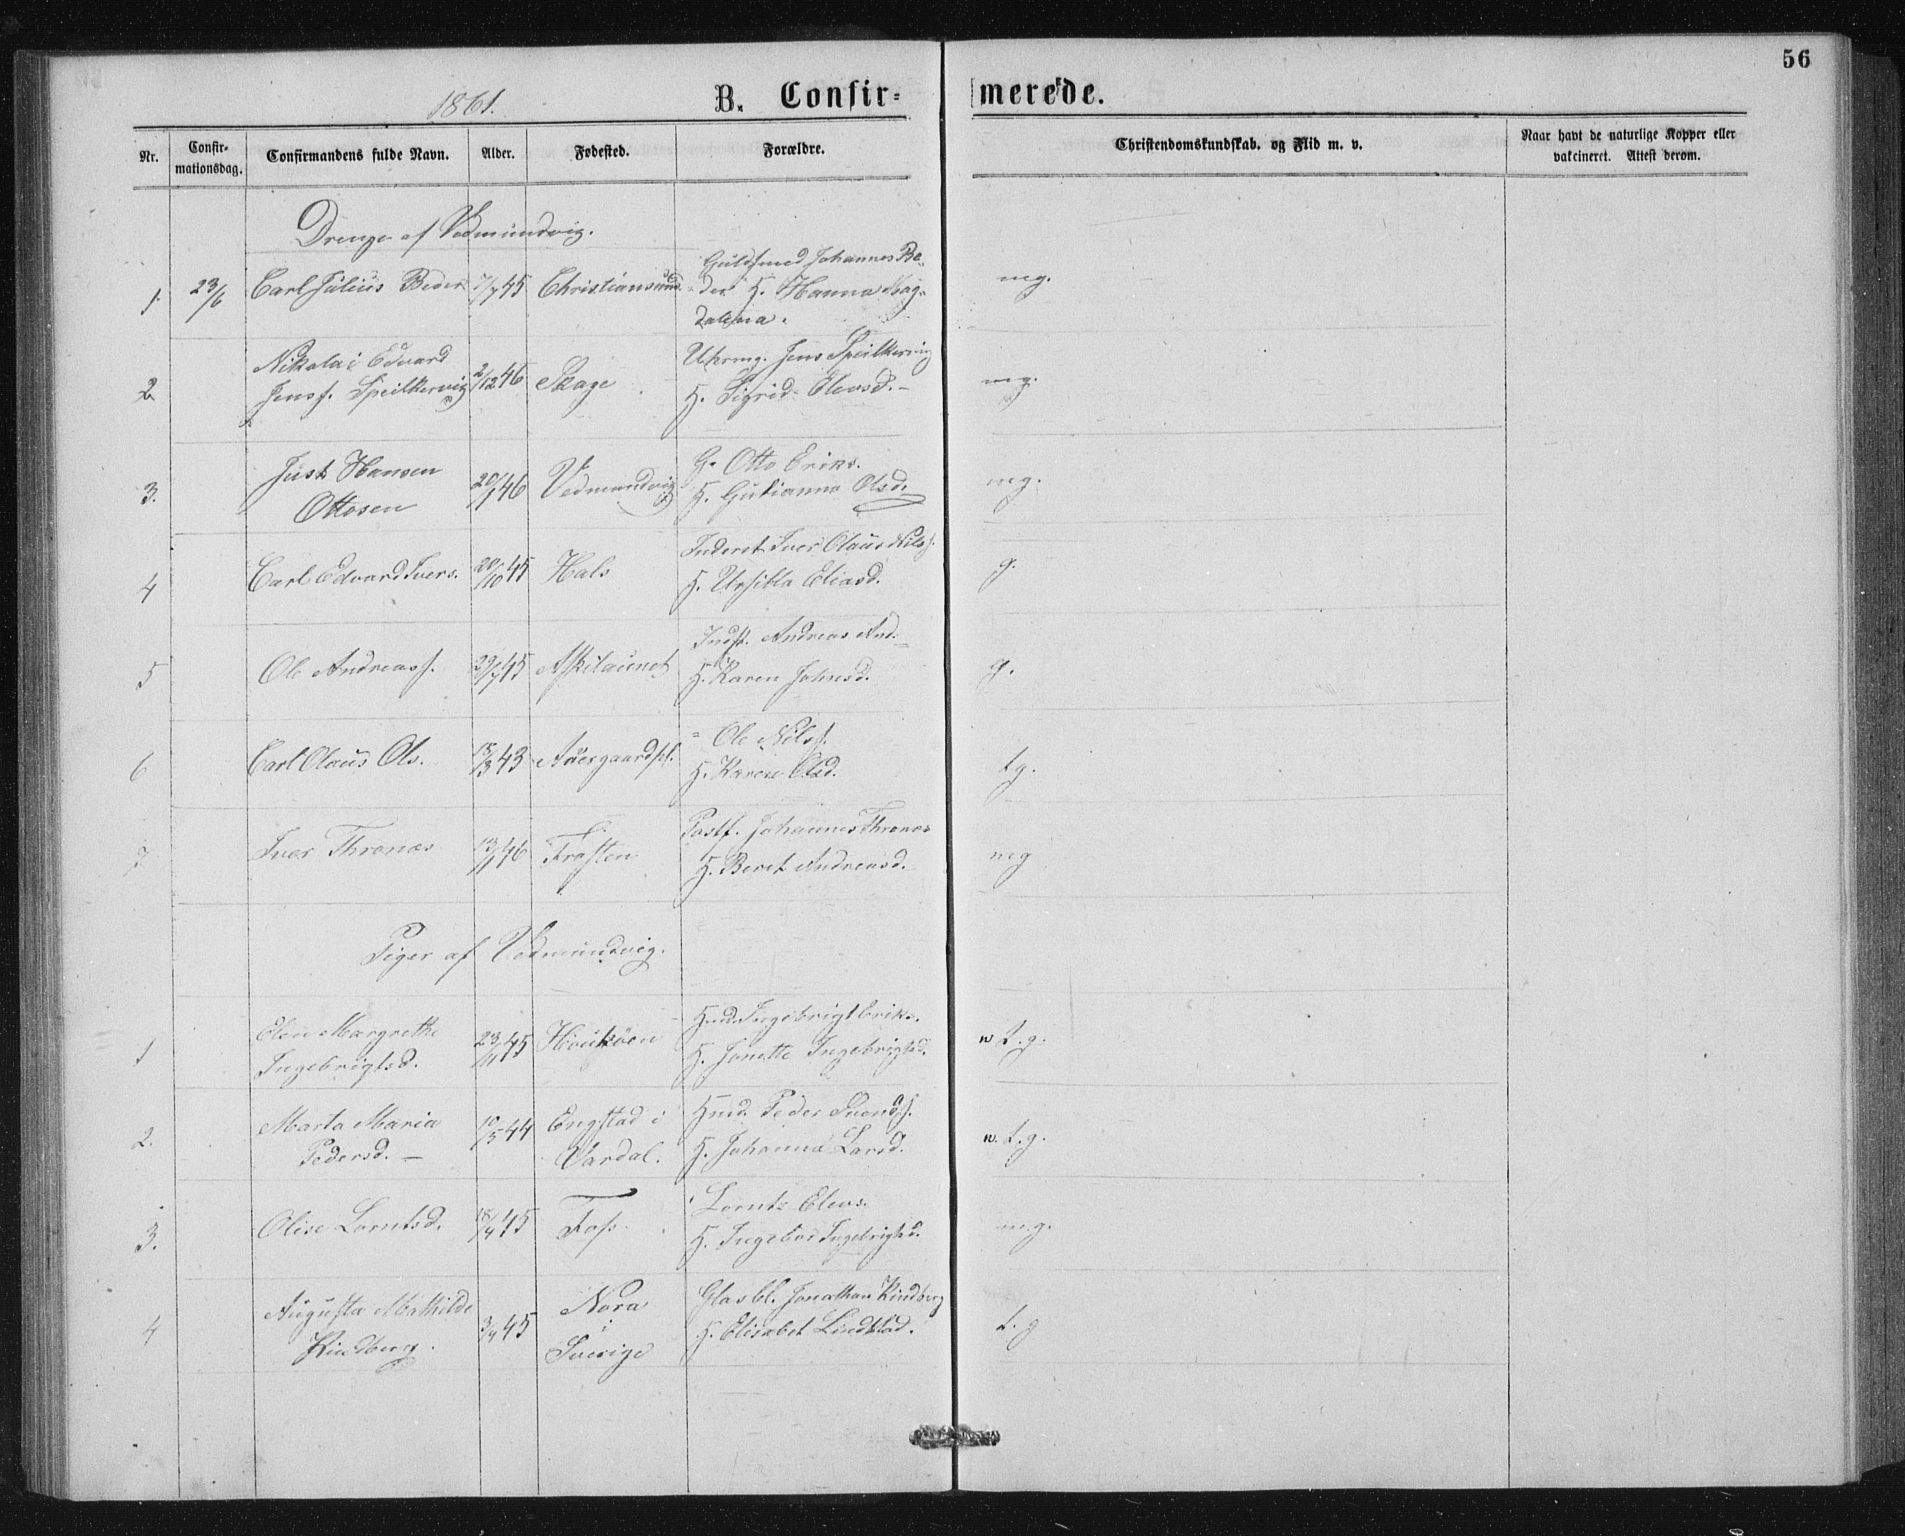 56
1861.
B. Confir=
merede.
Nr.
Confir-
mationsdag.
Confirmandens fulde Navn.
Alder.
Fødested.
Forældre.
Christendomskundskab, og Flid m. v.
Naar havt de naturlige Kopper eller
vakcineret. Attest derom.
Drenge af Vedmundvig.
1 23/6 Carl Julius Beder 7/7 45 Christiansund
Guldsmed Johannes Be-
der H. Hanna Mag-
dalena.
mg.
2 Nikolai Edvard
Jens. Speilkervig 2/12 46 Skage
Uhrmg. Jens Speilkervig
H. Sigrid Elevsd.
mg.
3. Just Hansen
Ottosen 20/1 46 Vedmundvig
G. Otto Eriks.
H. Gulianna Olsd.
mg.
4 Carl Edvard Ivers. 20/10 45 Hals
Inderst Iver Claus Nils.
H. Ursilla Eliasd.
g.
5 Ole Andreass. 29/7 45
Indst. Andreas And.
H. Karen Johnsd.
g.
6 Carl Olaus Ols. 13/3 43
" Ole Nilss.
H. Karen Olsd.
tg.
7 Iver Thronæs 13/1 46 Frosten
Postf. Johannes Thronæs
H. Beret Andreasd.
mg
Piger af Vedmundvig.
1 Elen Margrethe
Ingebrigtsd. 23/11 45
Hmd. Ingebrigt Eriks.
H. Jonette Ingebrigtsd.
n t.g.
2. Marta Maria
Pedersd. 10/5 44 Engstad i
Værdal.
Hmd. Peder Svends.
H. Johanna Larsd.
n. t.g.
3. Olise Lorntsd. 18/4 45 Foss.
Lornts Elevs.
H. Ingebor Ingebrigtsd.
mg.
4 Augusta Mathilde
Kindberg. 3/4 45 Nora
i
Sverige
Glasbl. Jonathan Kindberg
H. Elisabet Lindblad.
t.g